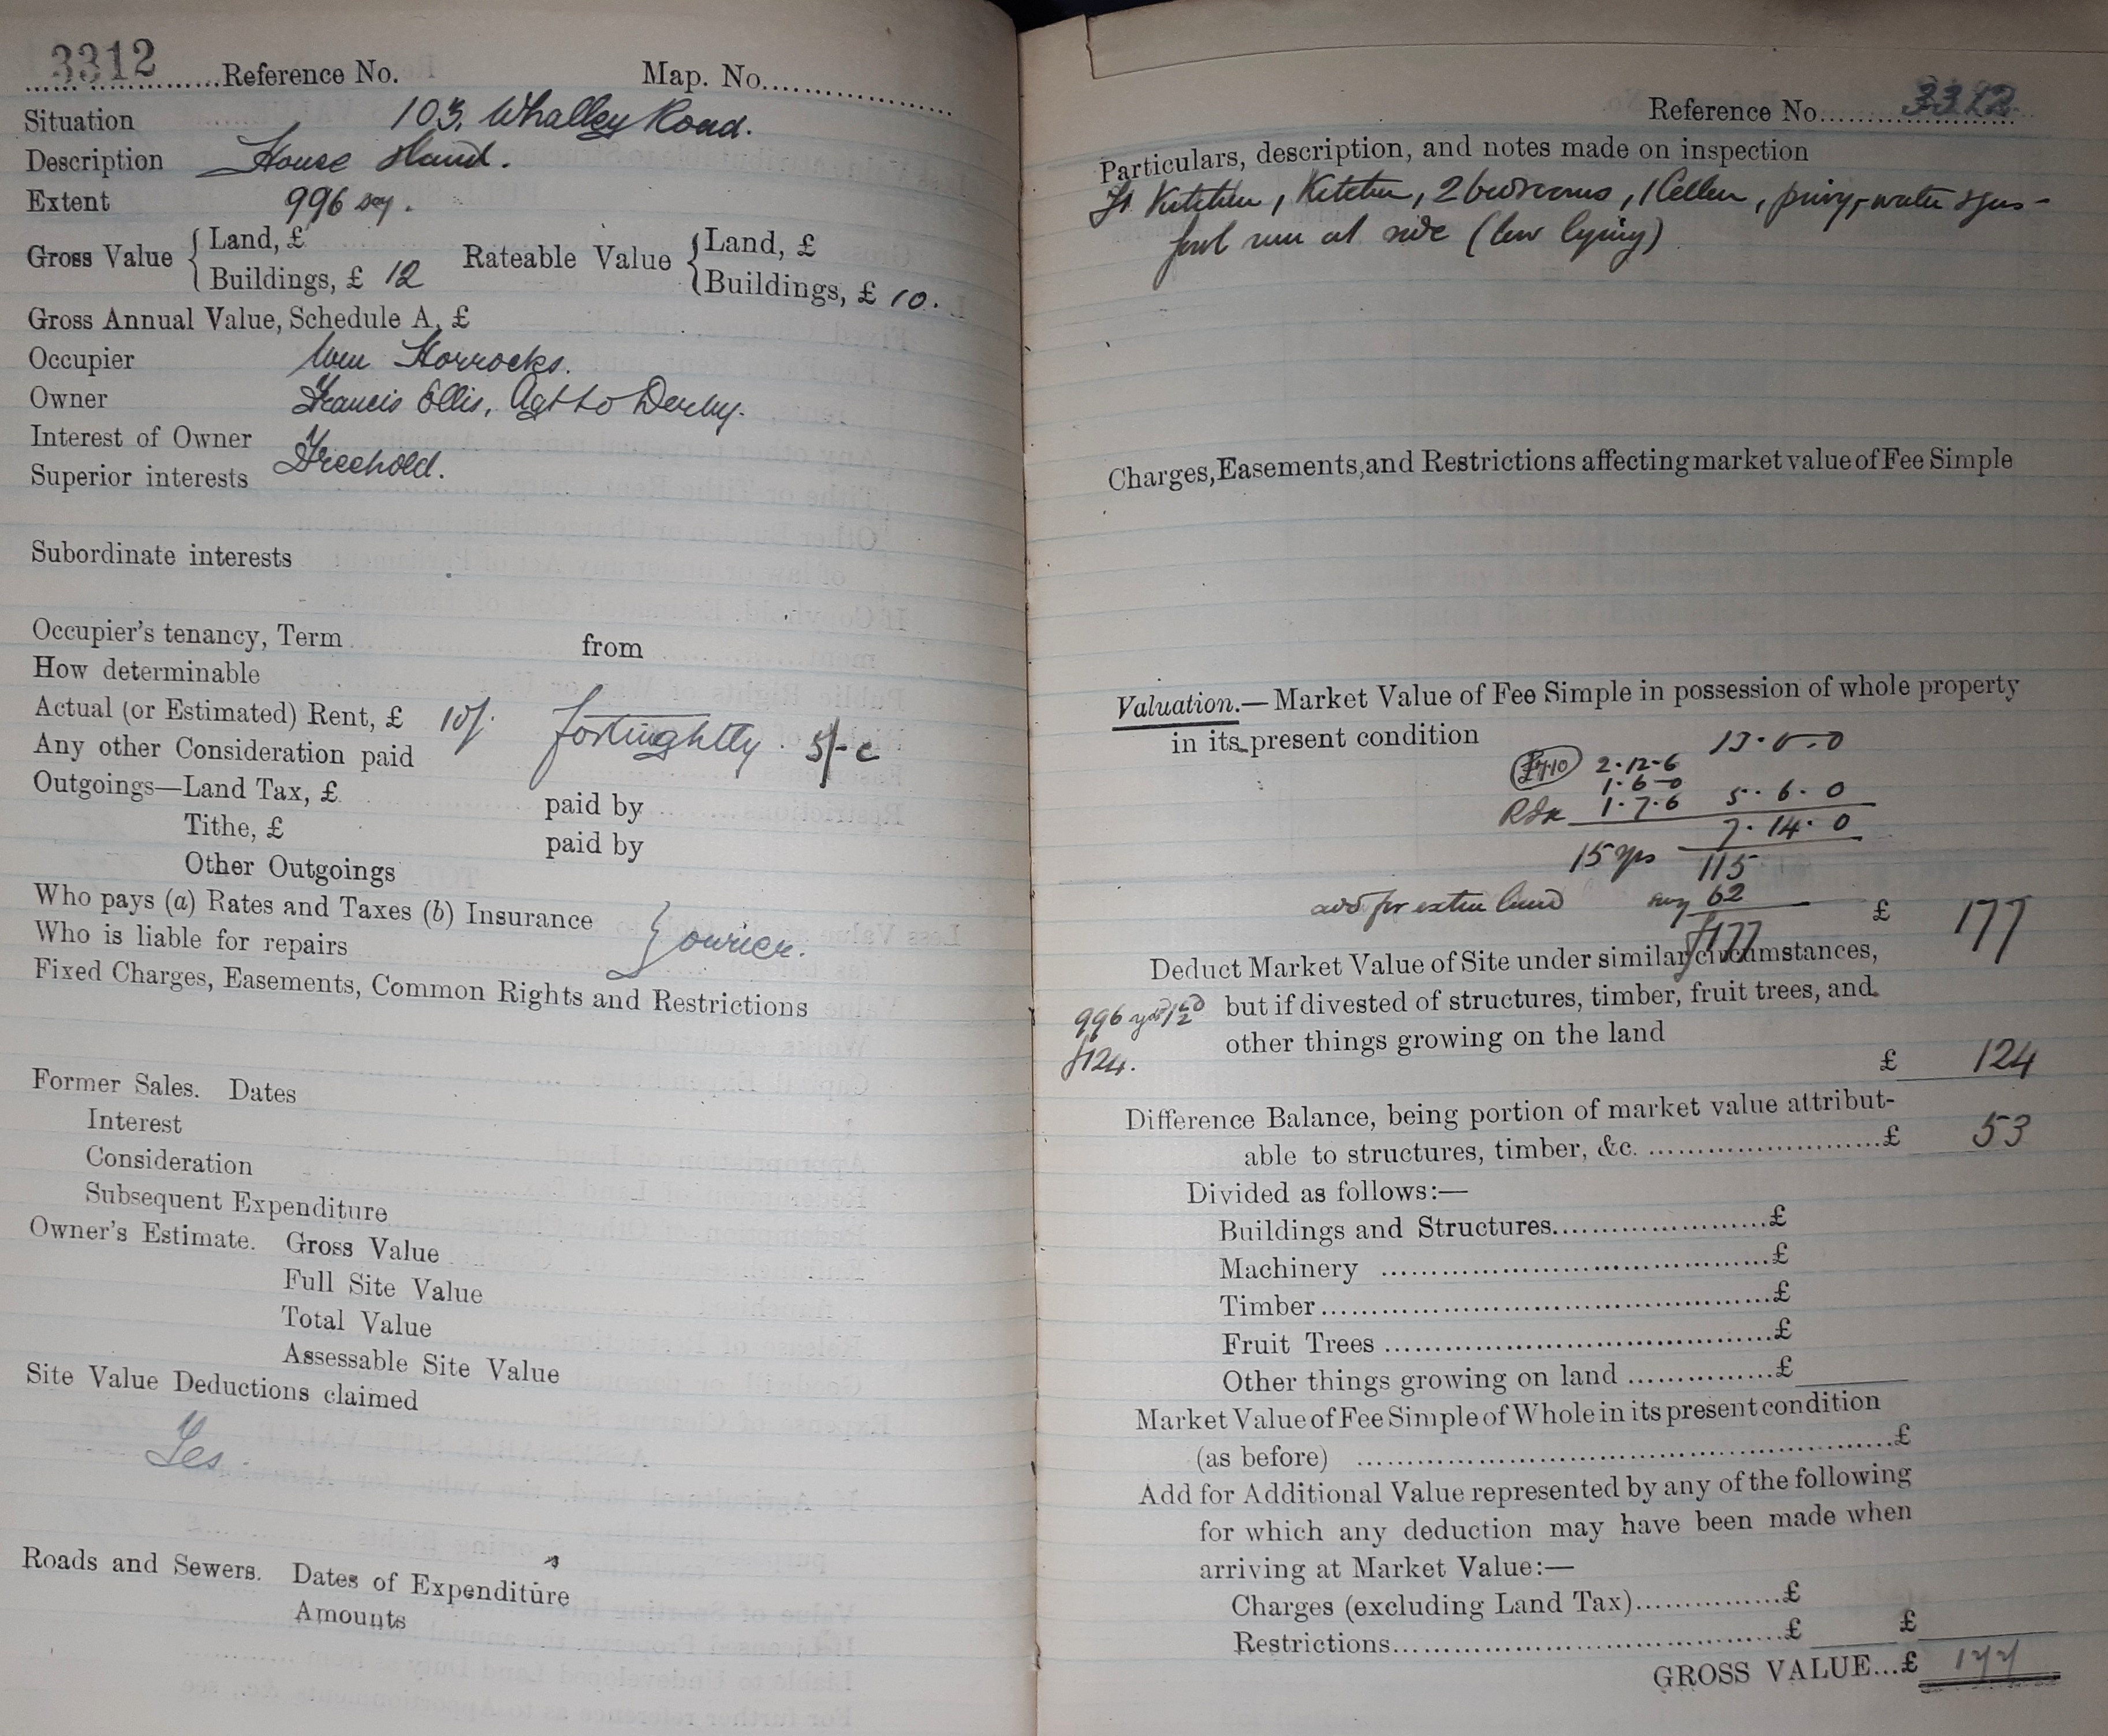 3312 Reference No. Map. No.
Situation 103, Whalley Road.
Description House & land.
Extent 996 sq y.
Gross Value { Land, £ Rateable Value { Land, £
Buildings, £ 12 Buildings, £ 10.
Gross Annual Value, Schedule A, £
Occupier Wm Horrocks.
Owner Francis Ellis, Agt to Derby.
Interest of Owner
Freehold.
Superior interests
Subordinate interests
Occupier's tenancy, Term from
How determinable
Actual (or Estimated) Rent, £ 10/- fortnightly. 5/- c
Any other Consideration paid
Outgoings—Land Tax, £ paid by
Tithe, £ paid by
Other Outgoings
Who pays (a) Rates and Taxes (b) Insurance } owner.
Who is liable for repairs
Fixed Charges, Easements, Common Rights and Restrictions
Former Sales. Dates
Interest
Consideration
Subsequent Expenditure
Owner's Estimate. Gross Value
Full Site Value
Total Value
Assessable Site Value
Site Value Deductions claimed
Yes
Roads and Sewers. Dates of Expenditure
Amounts
Reference No. 3312
Particulars, description, and notes made on inspection
Ft Kitchen, Kitchen, 2 bedrooms, 1 Cellar, privy, water & gas -
fowl run at side (low lying)
Charges, Easements, and Restrictions affecting market value of Fee Simple
Valuation.— Market Value of Fee Simple in possession of whole property
in its present condition 13.0.0
£7.10 2.12.6
1.6.0
1.7.6 5.6.0
7.14.0
15 yrs 115
add for extra land say 62 £ 177
£177
Deduct Market Value of Site under similar circumstances,
996 yds but if divested of structures, timber, fruit trees, and
other things growing on the land
£124. £ 124
Difference Balance, being portion of market value attribut-
able to structures, timber, &c. £ 53
Divided as follows:—
Buildings and Structures £
Machinery £
Timber £
Fruit Trees £
Other things growing on land £
Market Value of Fee Simple of Whole in its present condition
(as before) £
Add for Additional Value represented by any of the following
for which any deduction may have been made when
arriving at Market Value:—
Charges (excluding Land Tax) £
Restrictions £ £
GROSS VALUE...£ 177